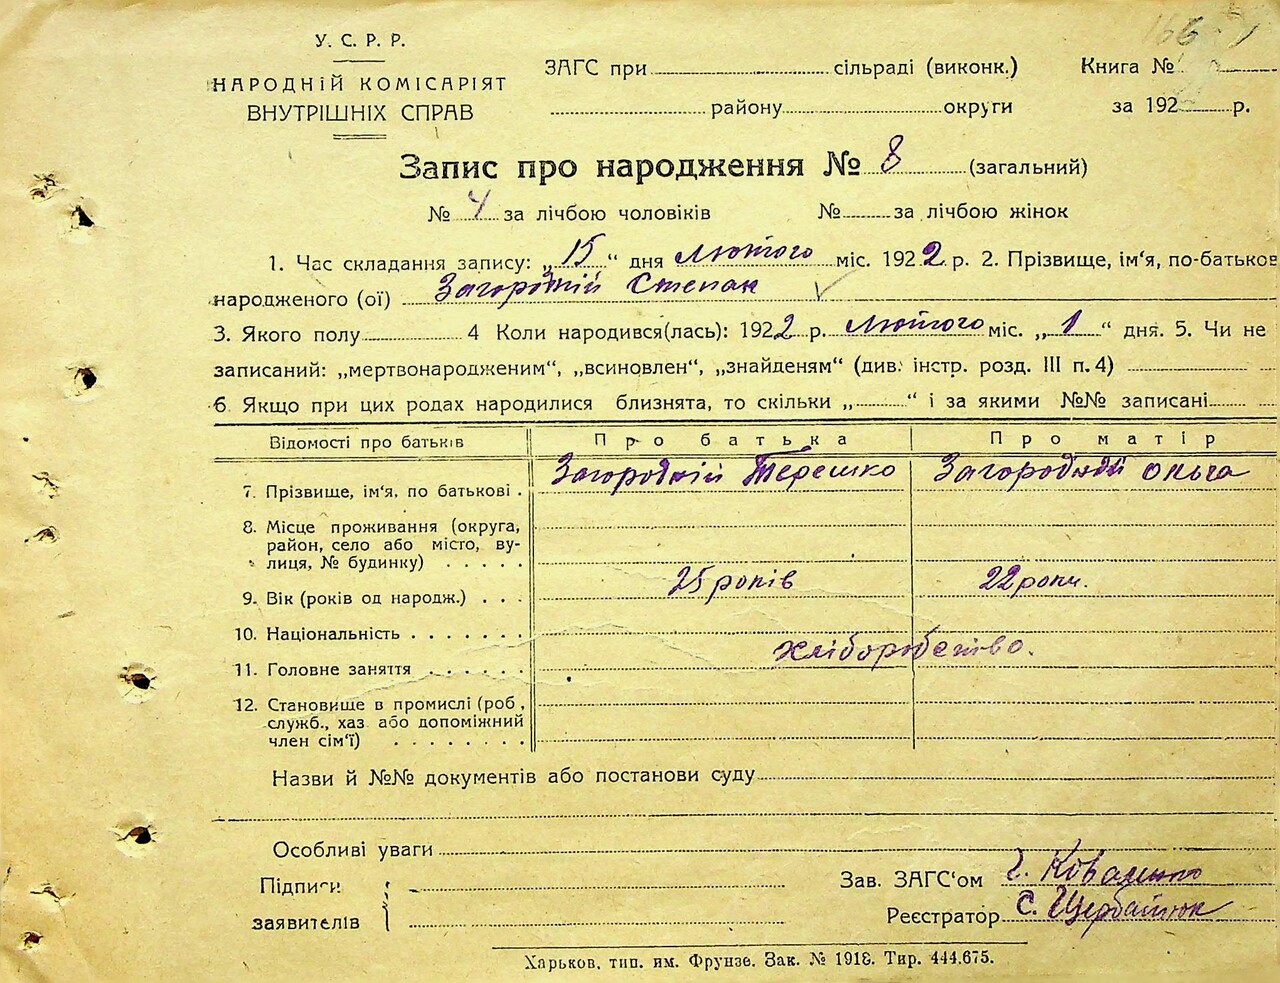 166
У. С. Р. Р.
НАРОДНІЙ КОМІСАРІЯТ
ВНУТРІШНІХ СПРАВ
ЗАГС при сільраді (виконк.) Книга №
району округи за 192 р.
Запис про народження № 8 (загальний)
№ 4 за лічбою чоловіків № за лічбою жінок
1. Час складання запису: „15“ дня Лютого міс. 1922 р. 2. Прізвище, ім‘я, по-батькові
народженого (ої) Загородній Степан
3. Якого полу 4 Коли народився(лась): 1922 р. Лютого міс. „1“ дня. 5. Чи не
записаний: „мертвонародженим“, „всиновлен“, „знайденям“ (див. інстр. розд. III п. 4)
6. Якщо при цих родах народилися близнята, то скільки „ “ і за якими №№ записані
Відомості про батьків Про батька Про матір
7. Прізвище, ім‘я, по батькові . Загородній Терешко Загородній Ольга
8. Місце проживання (округа,
район, село або місто, ву-
лиця, № будинку) . . . . .
9. Вік (років од народж.) . . . 25 років 22 роки.
10. Національність . . . . . . .
11. Головне заняття . . . . . . хліборобство.
12. Становище в промислі (роб,
служб., хаз або допоміжний
член сім‘ї) . . . . . . . .
Назви й №№ документів або постанови суду
Особливі уваги
Підписи
заявителів
Зав. ЗАГС‘ом Коваленко
Реєстратор С. Щербатюк
Харьков, тип. им. Фрунзе. Зак. № 1918. Тир. 444.675.